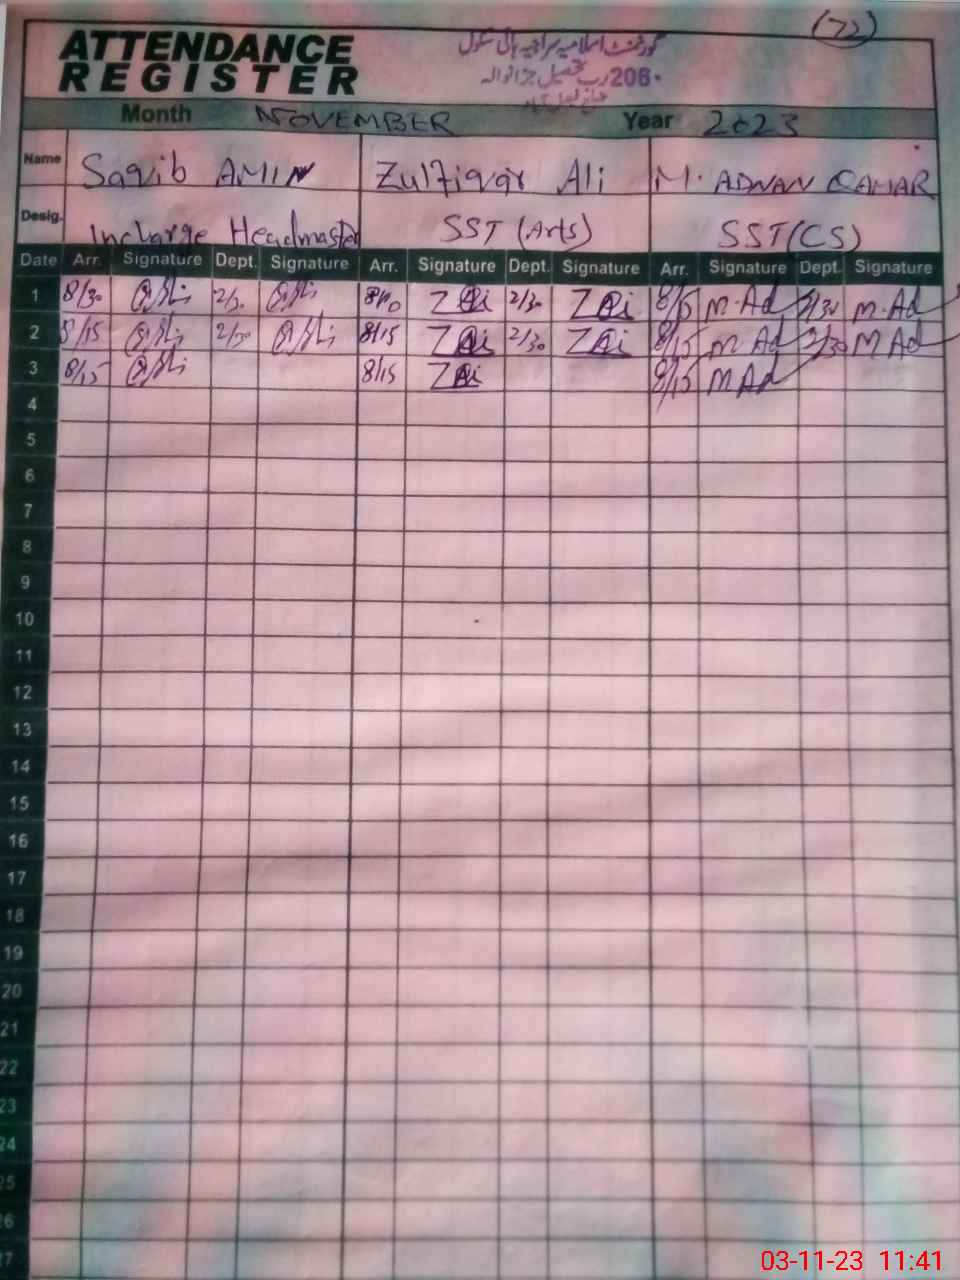 (72)
ATTENDANCE
REGISTER
گورنمنٹ اسلامیہ سراجیہ ہائی سکول
206 رب تحصیل جڑانوالہ
Month NOVEMBER Year 2023
Name Saqib AMIN Zulfiqar Ali M. ADNAN QAMAR
Desig. Incharge Headmaster SST (Arts) SST (CS)
Date Arr. Signature Dept. Signature Arr. Signature Dept. Signature Arr. Signature Dept. Signature
1 8/30 2/30 2/30 8/15 M.Ad 2/30 M.Ad
2 8/15 2/30 8/15 2/30 8/15 M Ad 2/30 M Ad
3 8/15 8/15 8/15 M Ad
4
5
6
7
8
9
10
11
12
13
14
15
16
17
18
19
20
21
22
23
24
25
26
27
03-11-23 11:41